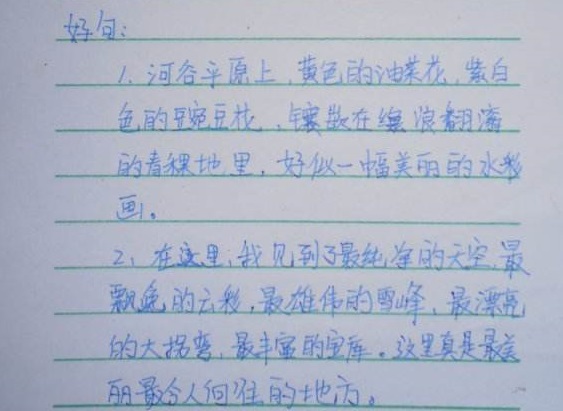 好句:
1、河谷平原上,黄色的油菜花,紫白
色的豌豆花,镶嵌在绿浪翻滚
的青稞地里,好似一幅美丽的水彩
画。
2、在这里,我见到了最纯净的天空,最
飘逸的云彩,最雄伟的雪峰,最漂亮
的大拐弯,最丰富的宝库。这里真是最美
丽最令人向往的地方。